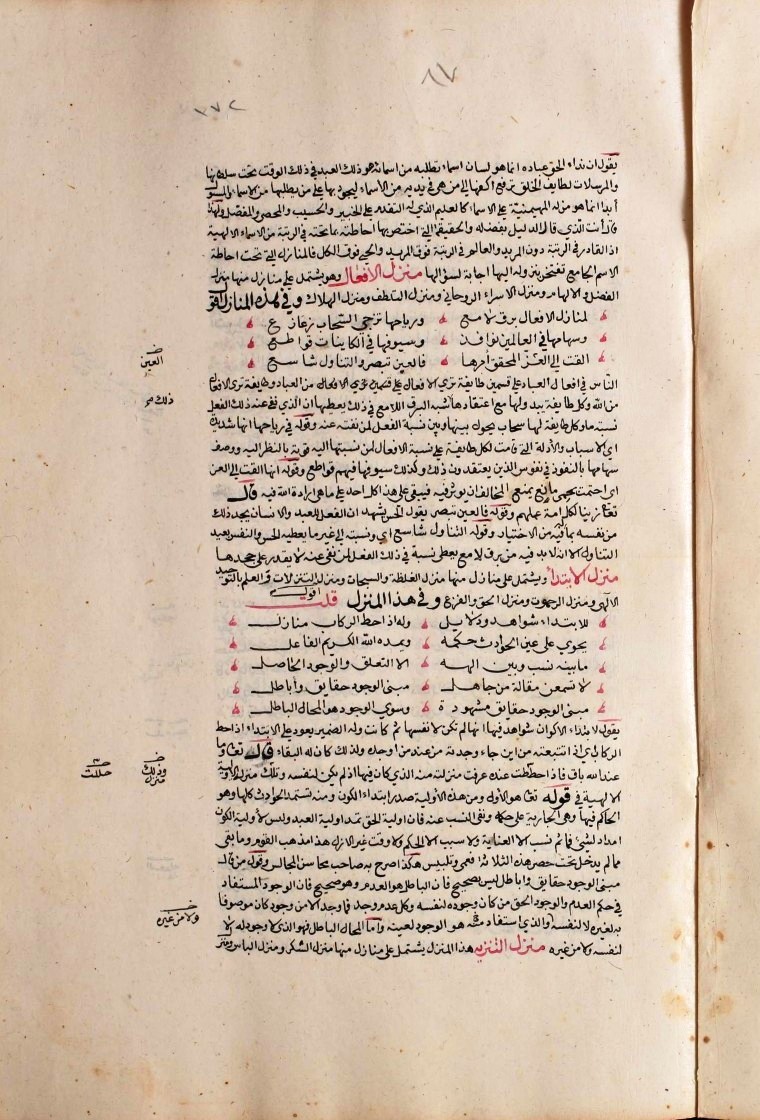 ٨٧
٢٧٢
يقول ان نداء الحق عباده انما هو لسان اسماء تطلبه من اسمائه هو ذلك العبد في ذلك الوقت تحت سلطانها
والمرسلات لطايف الخلق ترفع اكفها الى من هي في يديه من الاسماء ليجود بها على من يطلبها من الاسماء والمسؤل
أبدا انما هو من له المهيمنية على الاسماء كالعليم الذي له التقدير على الخبير والحسيب والمحصر والمفضل ولهذا
قال أنت الذي قال الدليل بفضله والحقيقة التي اختص بها احاطته بما تحته في الرتبة من الاسماء الالهية
اذ القادر في الرتبة دون المريد والعالم في الرتبة فوق المريد والحي فوق الكل فالمنازل التي تحت احاطة
الاسم الجامع تفتخر بنزوله اليها اجابة لسؤالها منزل الافعال وهو يشتمل على منازل منها منزل
الفضل والالهام ومنزل الاسراء الروحاني ومنزل التلطف ومنزل الهلاك وفي هذه المنازل اقول
لمنازل الافعال برق لامع ورياحها تزجي السحاب زعازع
وسهامها في العالمين نوافذ وسيوفها في الكاينات قواطع
القت الى العز المحقق امرها فالعين تبصر والتناول شاسع
العين
الناس في افعال العباد على قسمين طايفة ترى الافعال من العباد وطايفة ترى الافعال
ذلك صح
من الله وكل طايفة يبدو لها مع اعتقادها شبه البرق اللامع في ذلك يعطيها ان الذي نفى عنه ذلك الفعل
نسبة ما وكل طايفة لها سحاب يحول بينها وبين نسبة الفعل لمن نفته عنه وقوله في رياحها انها شديدة
اي الاسباب والأدلة التي قامت لكل طايفة على نسبة الافعال لمن نسبتها اليه قوية بالنظر اليه ووصف
سهامها بالنفوذ في نفوس الذين يعتقدون ذلك وكذلك سيوفها فيهم قواطع وقوله انها القت الى العز
اي احتمت بحمى مانع يمنع المخالف ان يوثر فيه فيبقى على هذا كل احد على ما هي ارادة الله فيه قال
تعالى زينا لكل امة عملهم وقوله فالعين تبصر يقول الحس يشهد ان الفعل للعبد والانسان يجد ذلك
من نفسه بما فيه من الاختيار وقوله التناول شاسع اي ونسبته الى غير ما يعطيه الحس والنفس بعيد
التناول الا انه لا بد فيه من برق لامع يعطي نسبة في ذلك الفعل لمن نفى عنه لا يقدر على جحدها
منزل الابتداء ويشتمل على منازل منها منزل الغلظة والسبحات ومنزل التنزلات والعلم بالتوحيد
الالهي ومنزل الرحموت ومنزل الحق والفزع وفي هذا المنزل اقول قلت
للابتداء شواهد ودلايل وله اذا حط الركاب منازل
يحوي على عين الحوادث حكمه ويمده الله الكريم الفاعل
ما بينه نسب وبين الهه الا التعلق والوجود الحاصل
لا تسمعن مقالة من جاهل مبنى الوجود حقايق واباطل
مبنى الوجود حقايق مشهودة وسوى الوجود هو المحال الباطل
يقول لابتداء الاكوان شواهد فيها انها لم تكن لانفسها ثم كانت وله الضمير يعود على الابتداء اذا حط
الركاب اي اذا تتبعته من اين جاء وجدته من عند من اوجده ولذلك كان له البقاء قال تعالى وما
وذلك
منزل
حللت
عند الله باق فاذا حططت عنده عرفت منزلته منه الذي كان فيها اذ لم يكن لنفسه وتلك منزل الاولية
الالهية في قوله تعالى هو الاول ومن هذه الاولية صدر ابتداء الكون ومنه تستمد الحوادث كلها وهو
الحاكم فيها وهي الجارية على حكمه ونفى النسب عنه فان اولية الحق تمد اولية العبد وليس لاولية الكون
امداد لشئ فما ثم نسب الا العناية ولا سبب الا الحكم ولا وقت غير الازل هذا مذهب القوم وما بقى
مما لم يدخل تحت حصر هذه الثلاثة فعمى وتلبيس هكذا صرح به صاحب محاسن المجالس وقول من قال
مبنى الوجود حقايق واباطل ليس بصحيح فان الباطل هو العدم وهو صحيح فان الوجود المستفاد
في حكم العدم والوجود الحق من كان وجوده لنفسه وكل عدم وجد فما وجد الا من وجود كان موصوفا
ولا من غيره
به لغيره لا لنفسه والذي استفاد منه هو الوجود لعينه واما المحال الباطل فهو الذي لا وجود له لا
لنفسه ولا من غيره منزل التنزيه هذا المنزل يشتمل على منازل منها منزل الشكر ومنزل الباس ومنزل